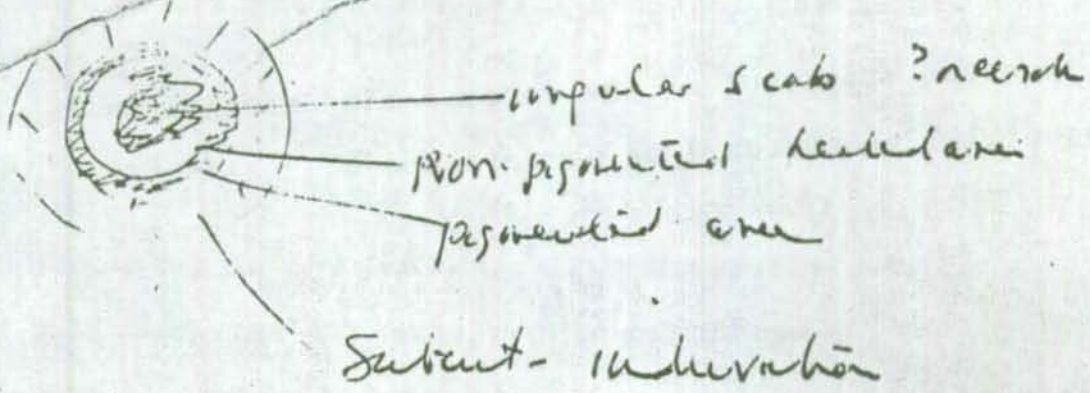 irregular scab ?necrosis
Non-pigmented healed area
pigmented area
Subcut- induration